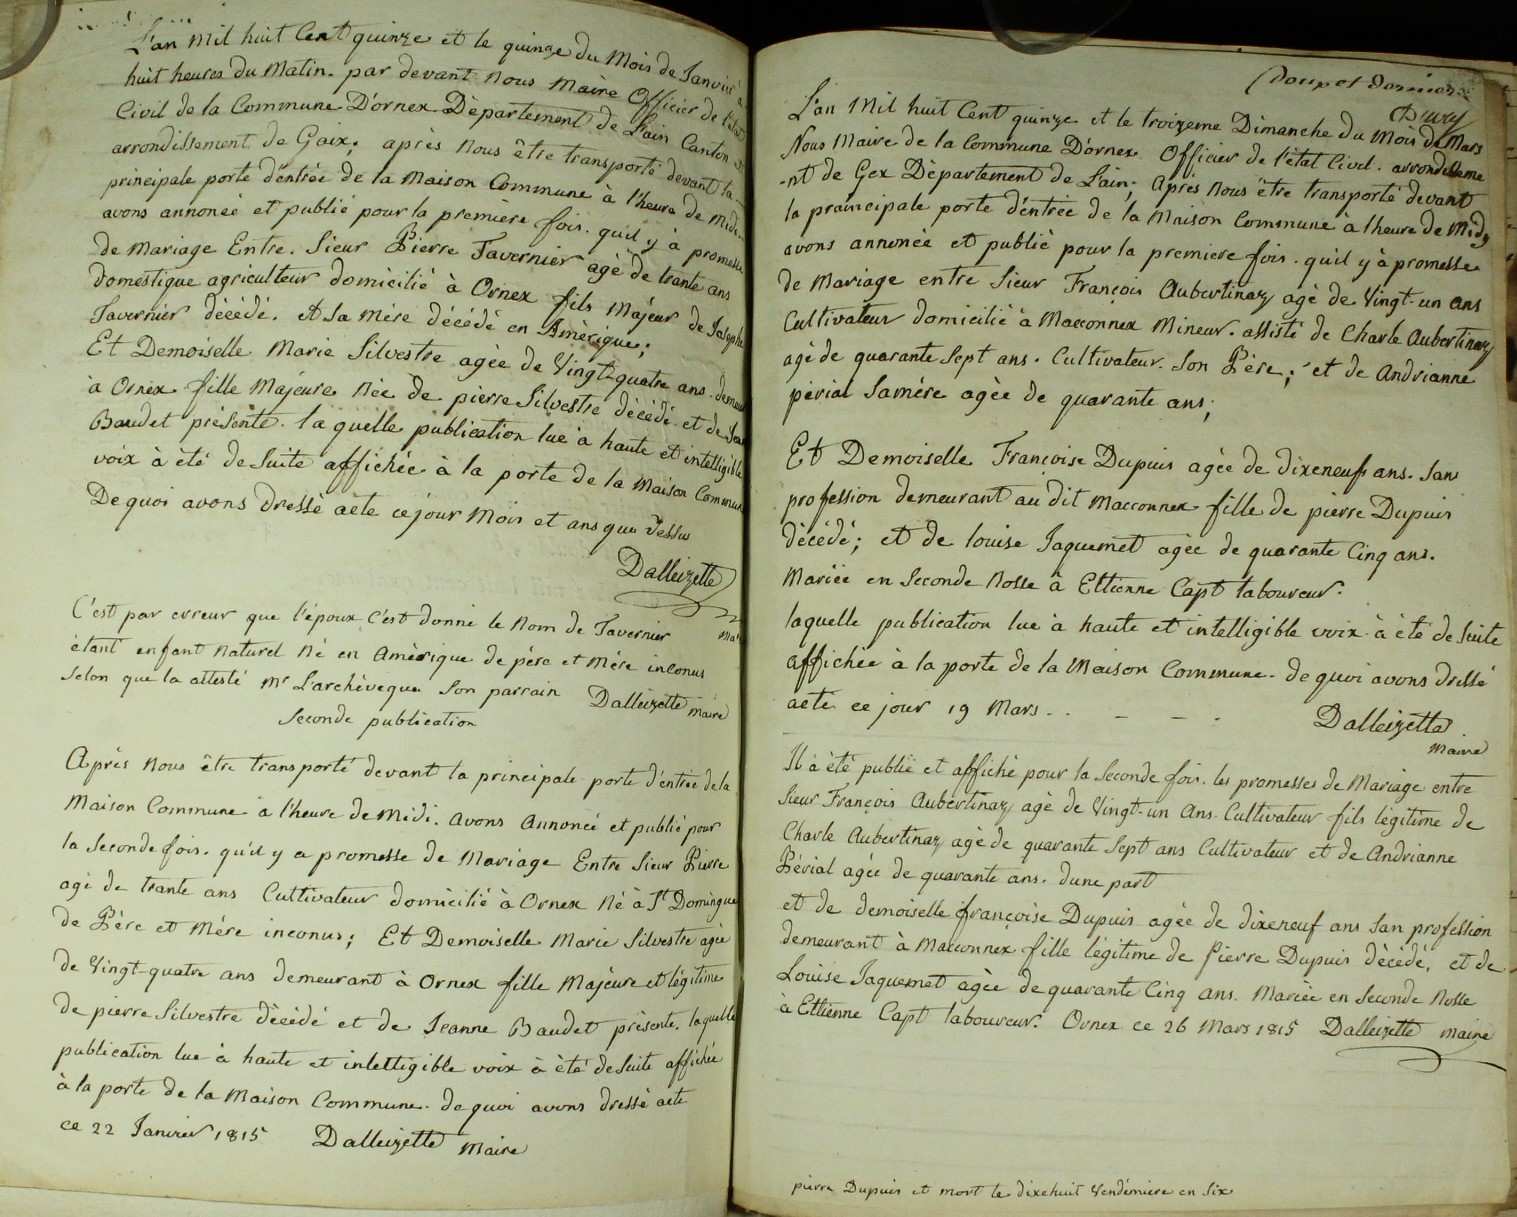 L'an Mil huit Cent quinze et le quinze du Mois de Janvier à
huit heures du Matin. par devant Nous Maire Officier de l'état
Civil de la Commune D'ornex Département de L'ain Canton
arrondissement de Gaix; après Nous être transporté devant la
principale porte d'entrée de la Maison Commune à l'heure de Midi
avons annoncé et publié pour la première fois. qu'il y à promesse
de Mariage Entre. Sieur Pierre Tavernier agé de trante ans
Domestique agriculteur domicilié à Ornex fils Majeur de Joseph
Tavernier décédé. et Sa Mére décédé en Amèrique;
Et Demoiselle Marie Silvestre agée de Vingt-quatre ans. demeu
à Ornex fille Majeure Née de pierre Silvestre décédé et de Jea
Baudet présente. la quelle publication lue à haute et intelligible
voix à été de Suite affichée à la porte de la Maison Commune
De quoi avons Dressé acte ce jour Mois et ans que dessu
Dalleizette
Mai
C'est par erreur que l'époux c'est donné le Nom de Tavernier
étant enfant Naturel Né en Amérique de pére et Mére inconus
Selon que la attesté Mr L'archèveque Son parrain Dalleizette maire
Seconde publication
Après Nous être transporté devant la principale porte d'entrée de la
Maison Commune à l'heure de Midi. avons Annoncé et publié pour
la Seconde fois. qu'il y a promesse de Mariage Entre Sieur Pierre
agé de trante ans Cultivateur domicilié à Ornex Né à St Domingue
de Pére et Mére inconus; Et Demoiselle Marie Silvestre agée
de Vingt-quatre ans demeurant à Ornex fille Majeure et légitime
de pierre Silvestre décédé et de Jeanne Baudet présente. laquelle
publication lue à haute et intelligible voix à été de Suite affichée
à la porte de la Maison Commune. de quoi avons dressé acte
ce 22 Janvier 1815 Dalleizette Maire
L'an Mil huit Cent quinze et le troizeme Dimanche du Mois de Mars
Nous Maire de la Commune D'ornex Officier de l'état Civil. arrondisseme
-nt de Gex Département de L'ain; Après Nous être transporté devant
la praincipale porte d'entrée de la Maison Commune à l'heure de Midy
avons annoncée et publié pour la premiere fois. qu'il y à promesse
de Mariage entre Sieur François Aubertinaz agé de Vingt-un ans
Cultivateur domicilié à Macconnex Mineur. assisté de Charle Aubertinaz
agé de quarante Sept ans. Cultivateur. Son Pére; et de Andrianne
périal Samére agée de quarante ans;
Et Demoiselle Françoise Dupuis agée de dixeneuf ans. San
profession demeurant au dit Macconnex fille de pierre Dupuis
décédé; et de louise Jaquemet agée de quarante Cinq ans.
Mariée en Seconde Nosse à Ettienne Capt laboureur.
laquelle publication lue à haute et intelligible voix à été de Suite
affichée à la porte de la Maison Commune. de quoi avons dressé
acte ce jour 19 Mars. . - - - . Dalleizette
Maire
Il à été publié et affiché pour la Seconde fois. les promesses de Mariage entre
Sieur François Aubertinaz agé de Vingt-un Ans Cultivateur fils légitime de
Charle Aubertinaz agé de quarante Sept ans Cultivateur et de Andrianne
Périal agée de quarante ans. dune part
et de demoiselle françoise Dupuis agée de dixeneuf ans San profession
demeurant à Macconnex fille légitime de pierre Dupuis décédé, et de
Louise Jaquemet agée de quarante Cinq ans. Mariée en Seconde Nosse
à Ettienne Capt laboureur. Ornex ce 26 Mars 1815 Dalleizette maire
pierre Dupuis et mort le dixehuit Vendémiere en Six